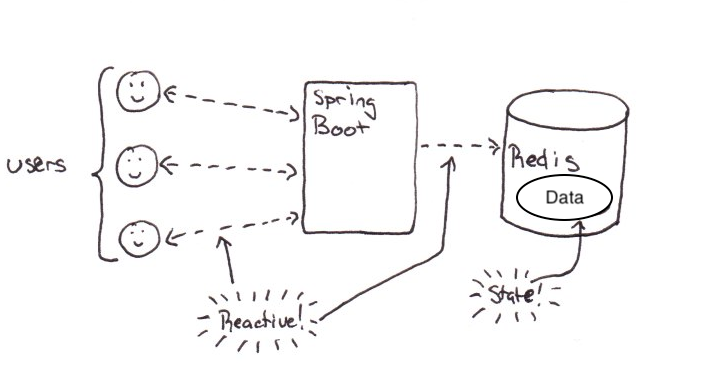 users
Spring
Boot
Redis
Data
Reactive!
State!